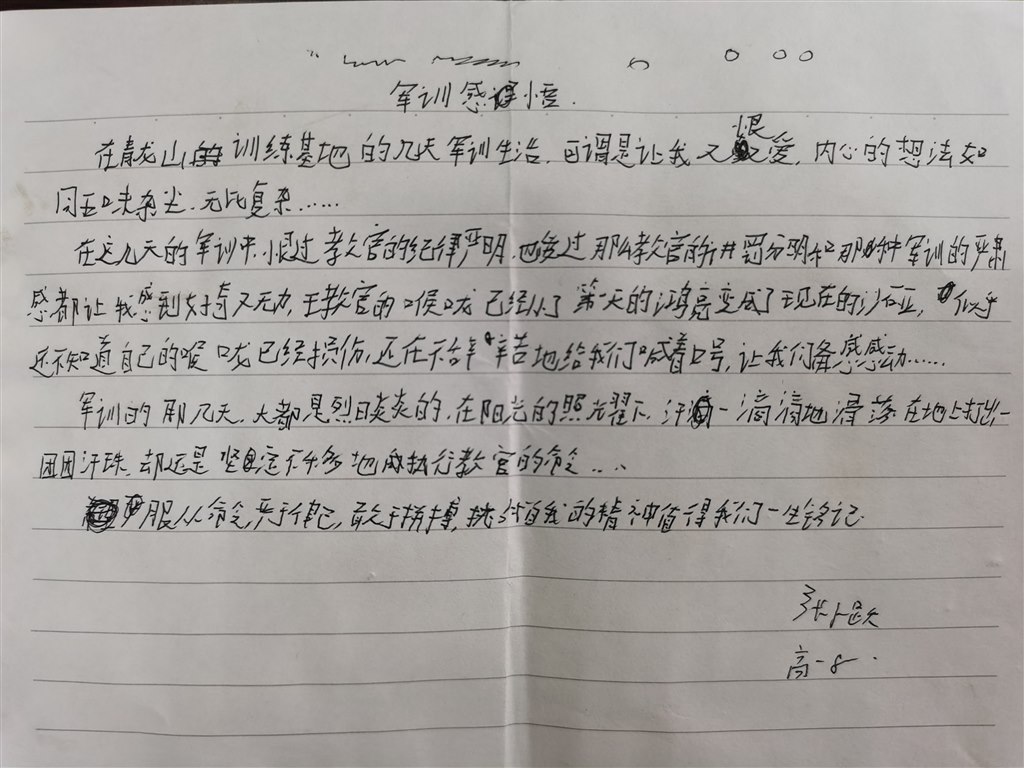 军训感悟.
在青龙山训练基地的几天军训生活,可谓是让我又恨爱,内心的想法如
同五味杂尘.无比复杂......
在这几天的军训中.恨过教官的纪律严明.也爱过那么教官的 罚分明和那种军训的严肃
感都让我感到好奇又无力,王教官的喉咙已经从了第一天的鸿亮变成了现在的沙哑,似乎
还不知道自己的喉咙已经损伤,还在不辞辛苦地给我们喊着口号,让我们 感感动......
军训的那几天.大都是烈日炎炎的.在阳光的照耀下.汗一滴滴地滑落在地上打出一
团团汗珠.却还是坚定不 地 执行教官的命令....
服从命令,严于律己,敢于拼搏,挑 自我的精神值得我们一生铭记.
张
高一8.